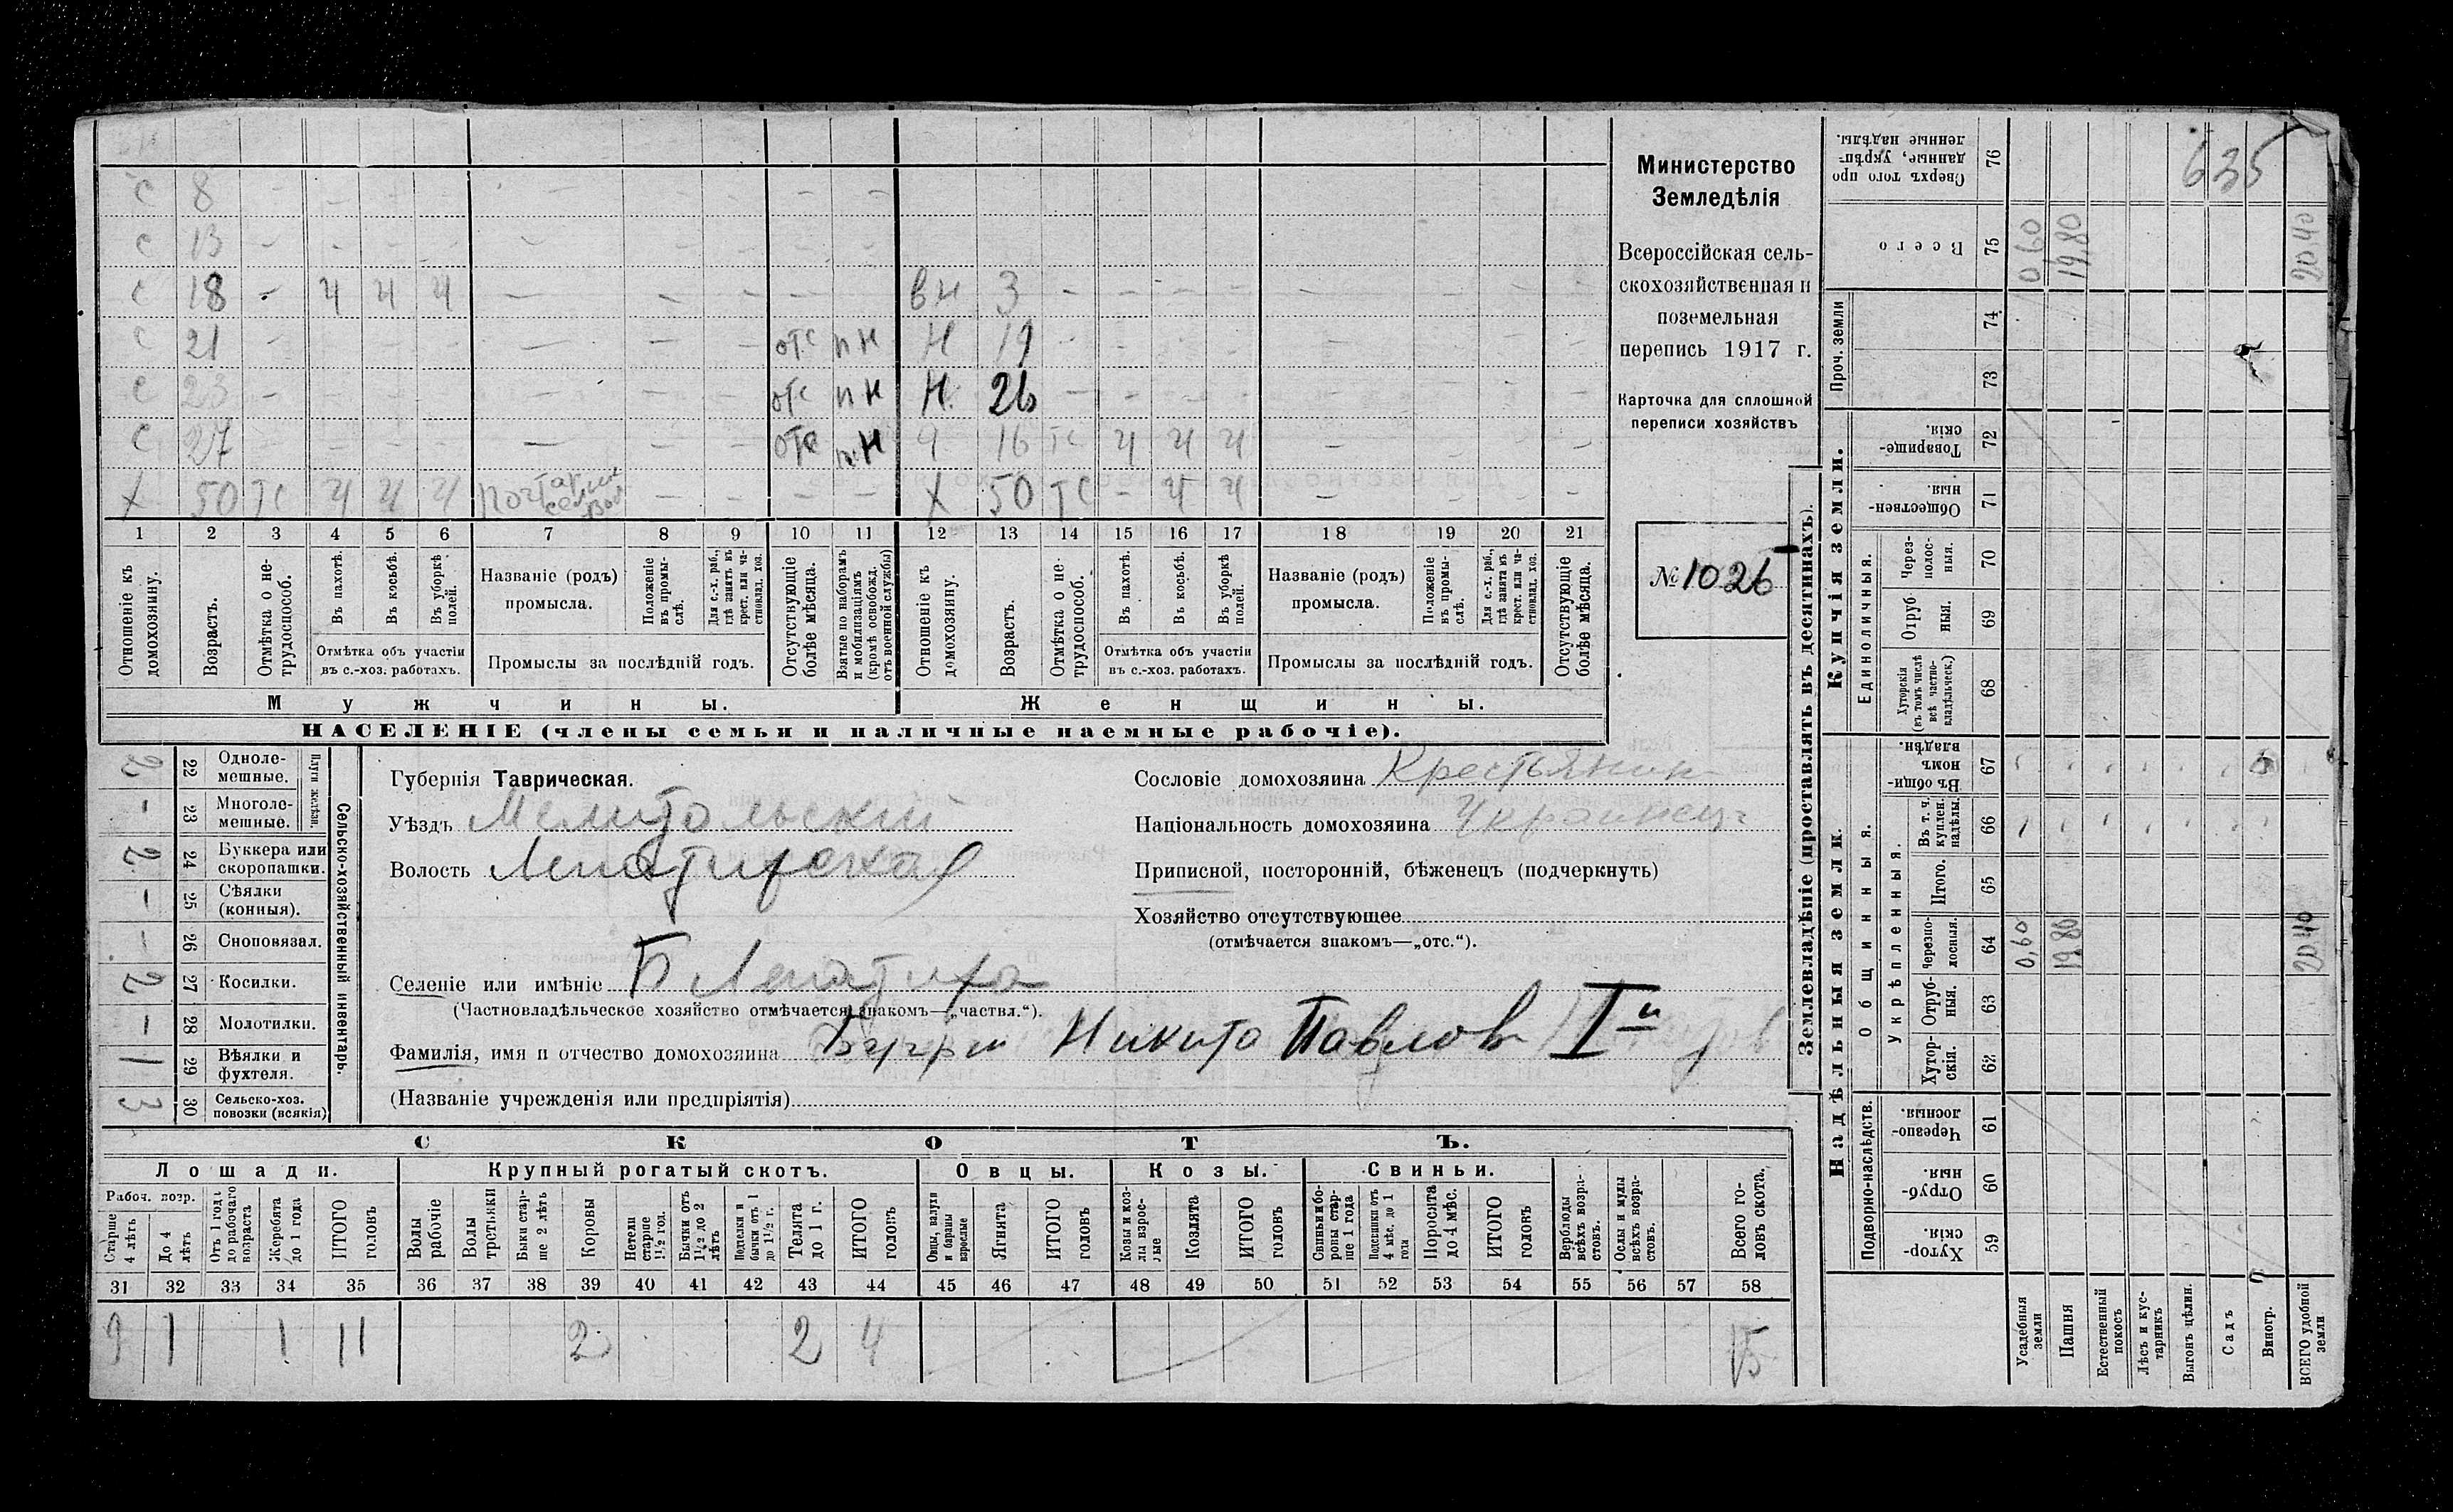 с 8 - - - - - -
с 13 - - - - - - - -
с 18 - ч ч ч - - - - - вн 3 - - - - - - - -
с 21 - - - - - - - отс пн н 19 - - - - - - - -
с 23 - - - - - - - отс пн н. 26 - - - - - - - -
с 27 - - - - - - - отс пн ч 16 тс ч ч ч - - - -
х 50 тс ч ч ч - - - - х 50 тс - ч ч - - - -
1 2 3 4 5 6 7 8 9 10 11 12 13 14 15 16 17 18 19 20 21
Отношеніе къ домохозяину.
Возрастъ.
Отмѣтка о нетрудоспособ.
Въ пахотѣ.
Въ косьбѣ.
Въ уборкѣ полей.
Отмѣтка объ участіи
въ с.-хоз. работахъ.
Названіе (родъ)
промысла.
Положеніе въ промыслѣ.
Для с.-х. раб., гдѣ занятъ къ крест. или частновлад. хоз.
Промыслы за послѣдній годъ.
Отсутствующіе болѣе мѣсяца.
Взятые по наборамъ и мобилизаціямъ (кромѣ освобожд. отъ военной службы)
Отношеніе къ домохозяину.
Возрастъ.
Отмѣтка о нетрудоспособ.
Въ пахотѣ.
Въ косьбѣ.
Въ уборкѣ полей.
Отмѣтка объ участіи
въ с.-хоз. работахъ.
Названіе (родъ)
промысла.
Положеніе въ промыслѣ.
Для с.-х. раб., гдѣ занята къ крест. или частновлад. хоз.
Промыслы за послѣдній годъ.
Отсутствующіе болѣе мѣсяца.
Мужчины.
Женщины.
НАСЕЛЕНІЕ (члены семьи и наличные наемные рабочіе).
Министерство
Земледѣлія
Всероссійская сель-
скохозяйственная и
поземельная
перепись 1917 г.
Карточка для сплошной
переписи хозяйствъ
№ 1026
Сельско-хозяйственный инвентарь.
Плуги желѣзн.
2 22 Одноле-
мешные.
- 23 Многоле-
мешные.
2 24 Буккера или
скоропашки.
- 25 Сѣялки
(конныя).
- 26 Сноповязал.
2 27 Косилки.
- 28 Молотилки.
1 29 Вѣялки и
фухтеля.
3 30 Сельско-хоз.
повозки (всякія)
Губернія Таврическая.
Уѣздъ Мелитопольскій
Волость Лепатихская
Селеніе или имѣніе Б Лепатиха
(Частновладѣльческое хозяйство отмѣчается знакомъ—„частвл.“).
Фамилія, имя и отчество домохозяина Бугрій Никита Павлов I й
(Названіе учрежденія или предпріятія)
Сословіе домохозяина Крестьянин
Національность домохозяина Украинец
Приписной, посторонній, бѣженецъ (подчеркнуть)
Хозяйство отсутствующее
(отмѣчается знакомъ—„отс.“).
СКОТЪ.
Лошади. Крупный рогатый скотъ. Овцы. Козы. Свиньи.
Рабоч. возр.
Старше 4 лѣтъ
До 4 лѣтъ
Отъ 1 года до рабочаго возраста
Жеребята до 1 года
ИТОГО головъ
Волы рабочіе
Волы третьяки
Быки старше 2 лѣтъ
Коровы
Нетели старше 1 1/2 год.
Бычки отъ 1 1/2 до 2 лѣтъ
Подтелки и бычки отъ 1 до 1 1/2 г.
Телята до 1 г.
ИТОГО головъ
Овцы, валухи и бараны взрослые
Ягнята
ИТОГО головъ
Козы и козлы взрослые
Козлята
ИТОГО головъ
Свиньи и боровы старше 1 года
Подсвинки отъ 4 мѣс. до 1 года
Поросята до 4 мѣс.
ИТОГО головъ
Верблюды всѣхъ возрастовъ.
Ослы и мулы всѣхъ возрастовъ.
Всего головъ скота.
31 32 33 34 35 36 37 38 39 40 41 42 43 44 45 46 47 48 49 50 51 52 53 54 55 56 57 58
9 1 1 11 2 2 4 15
Землевладѣніе (проставлять въ десятинахъ).
Купчія земли.
Надѣльныя земли.
Проч. земли
Единоличныя.
Общинныя.
Укрѣпленныя.
Подворно-наслѣдств.
Сверхъ того проданные, укрѣпленные надѣлы. 76
635
Всего 75 0,60 19,80 20,40
74
73
Товарищескія. 72
Общественныя. 71
Черезполосныя. 70
Отрубныя. 69
Хуторскія (въ томъ числѣ всѣ частновладѣльческ.) 68
Въ общинномъ владѣн. 67
Въ т. ч. куплен. надѣлы. 66
Итого. 65
Черезполосныя. 64 0,60 19,80 20,40
Отрубныя. 63
Хуторскія. 62
Черезполосныя. 61
Отрубныя. 60
Хуторскія. 59
Усадебныя земли
Пашня
Естественный покосъ
Лѣсъ и кустарникъ
Выгонъ цѣлин.
Садъ
Виногр.
ВСЕГО удобной земли